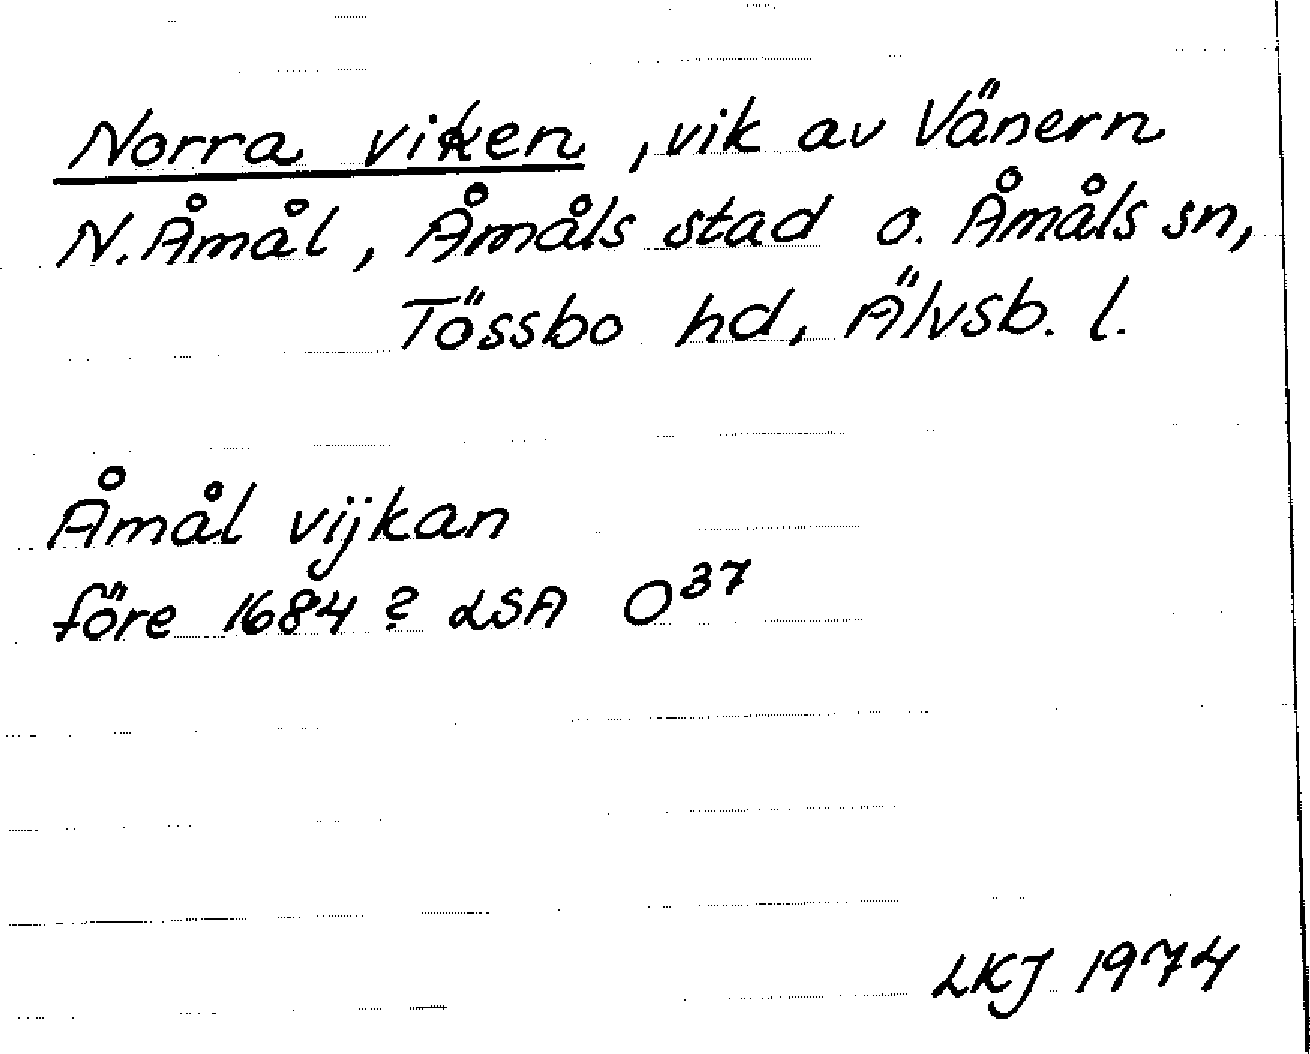 Norra viken, vik av Vänern
N. Åmål, Åmåls stad o. Åmåls sn,
Tössbo hd, Älvsb. l.
Åmål vijkan
före 1684? LSA O37
LKJ 1974